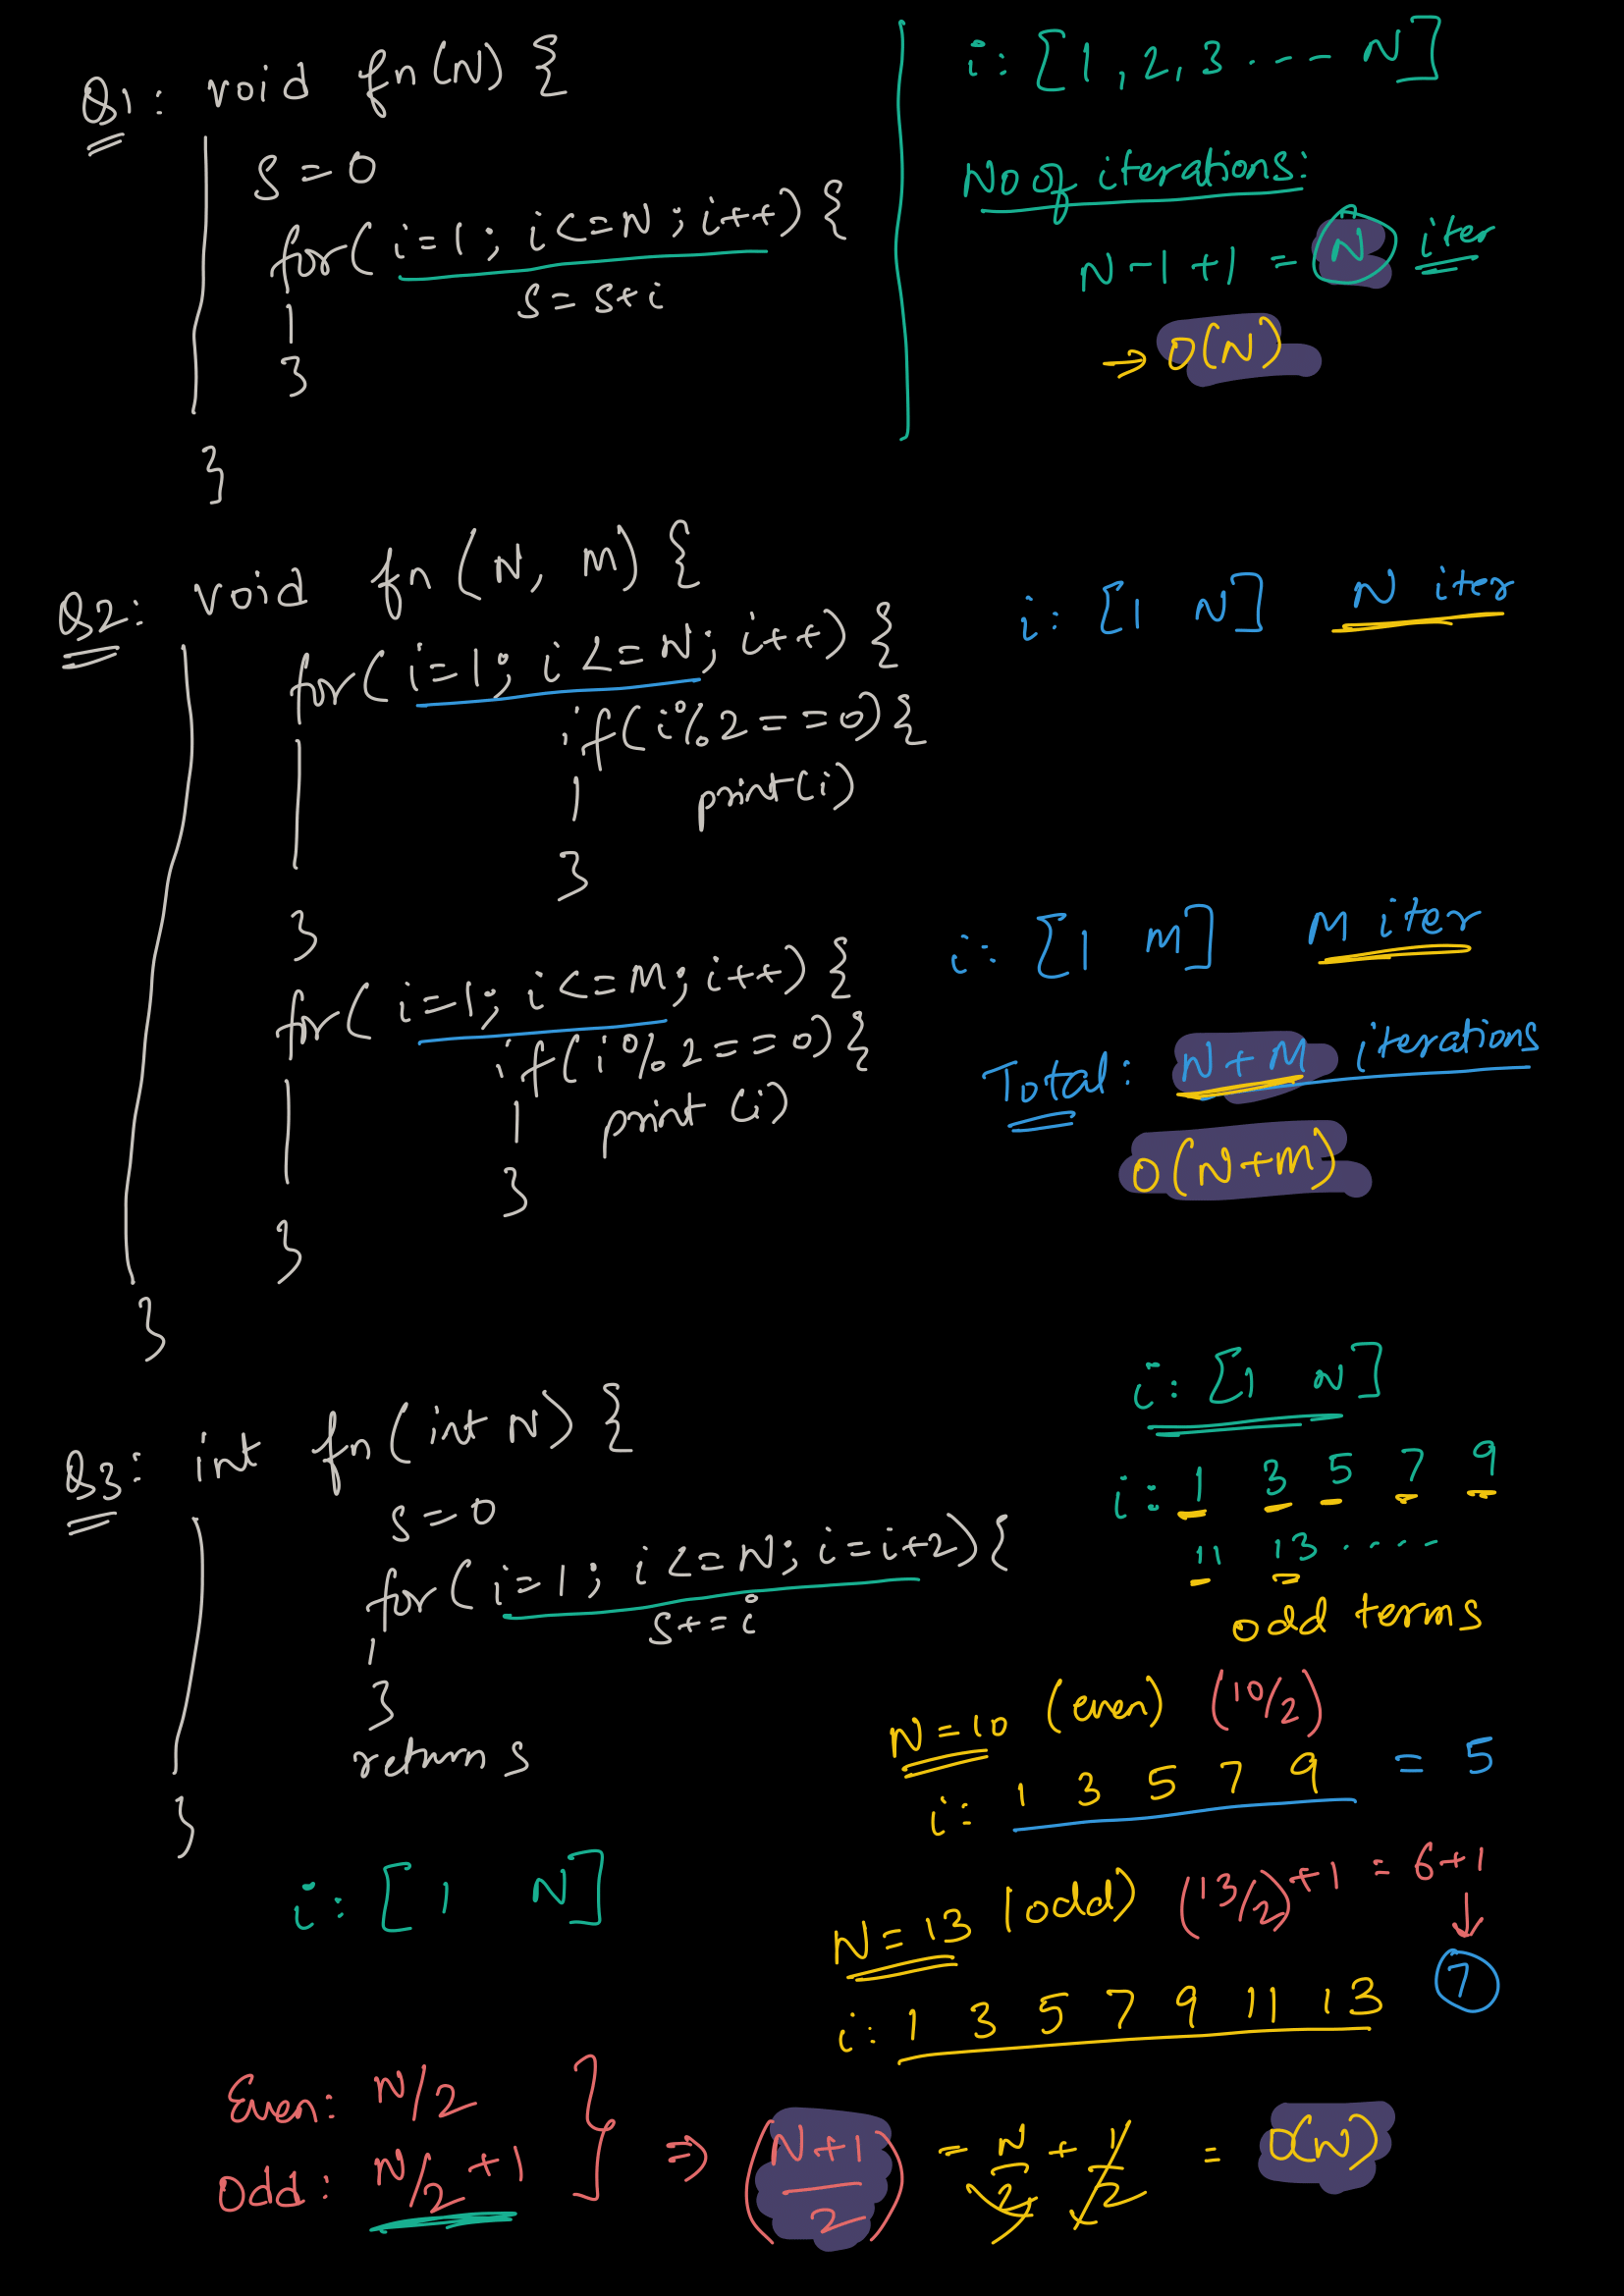 Q1: void fn(N) {
s = 0
for( i=1; i<=N; i++) {
s = s+i
}
}
i: [1, 2, 3 .... N]
No of iterations:
N-1+1 = N iter
→ O(N)
Q2: void fn (N, M) {
for( i=1; i<=N; i++) {
if(i%2==0){
print(i)
}
}
for( i=1; i<=M; i++) {
if(i%2==0){
print (i)
}
}
}
i: [1 N] N iter
i: [1 M] M iter
Total: N+M iterations
O(N+M)
Q3: int fn(int N) {
s=0
for( i=1; i<=N; i=i+2){
s+=i
}
return s
}
i: [1 N]
i: [1 N]
i: 1 3 5 7 9
11 13 ....
odd terms
N=10 (even) (10/2)
i: 1 3 5 7 9 = 5
N=13 (odd) (13/2)+1 = 6+1
↓
7
i: 1 3 5 7 9 11 13
Even: N/2
Odd: N/2+1 } ⇒ (N+1/2) = N/2 + 1/2 = O(N)